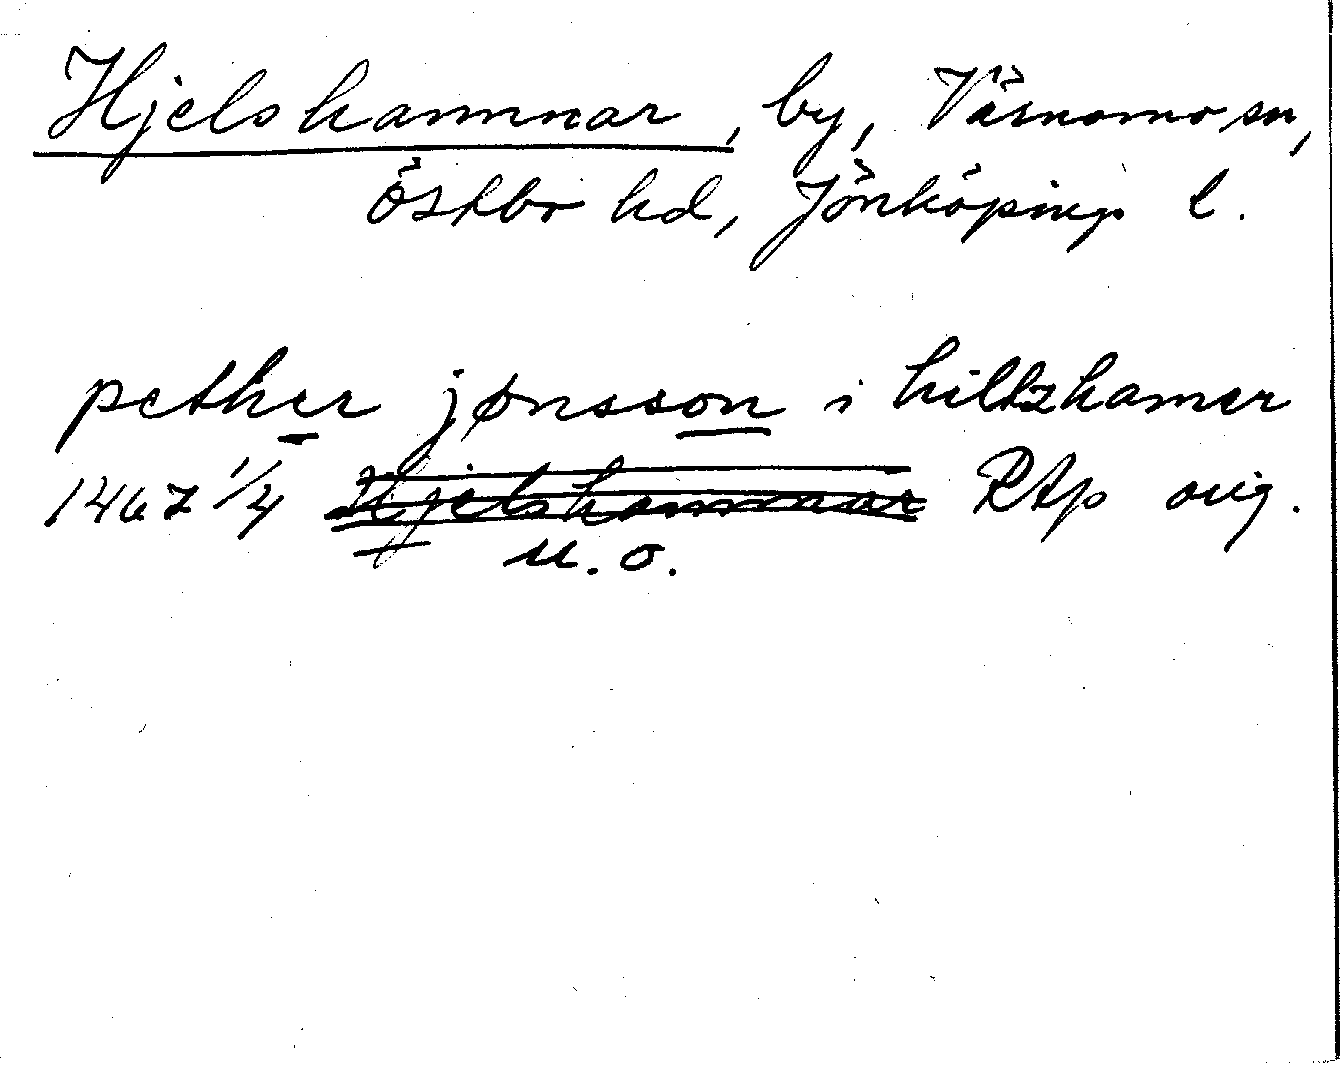 Hjelshammar, by, Värnamo sn,
Östbo hd, Jönköpings l.
pether jønsson i hiltzhamer
1467 1/4 Hjelshammar RAp orig.
u. o.